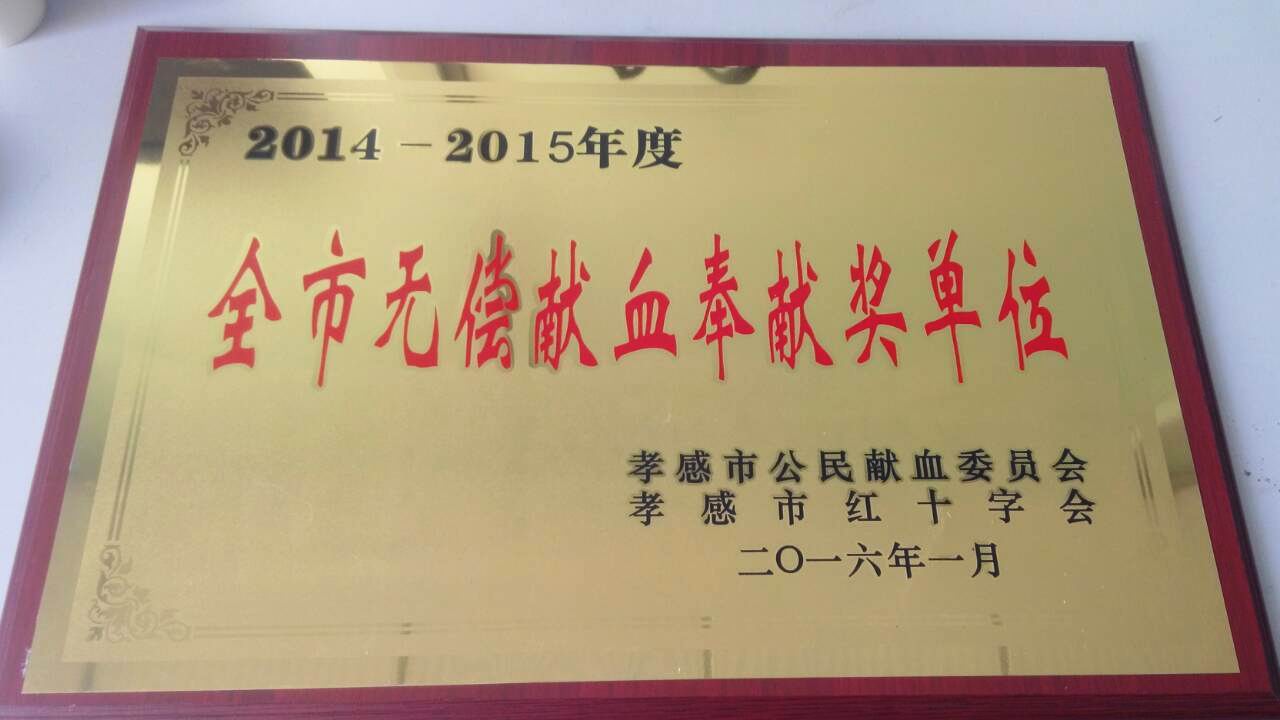 2014－2015年度
全市无偿献血奉献奖单位
孝感市公民献血委员会
孝感市红十字会
二〇一六年一月